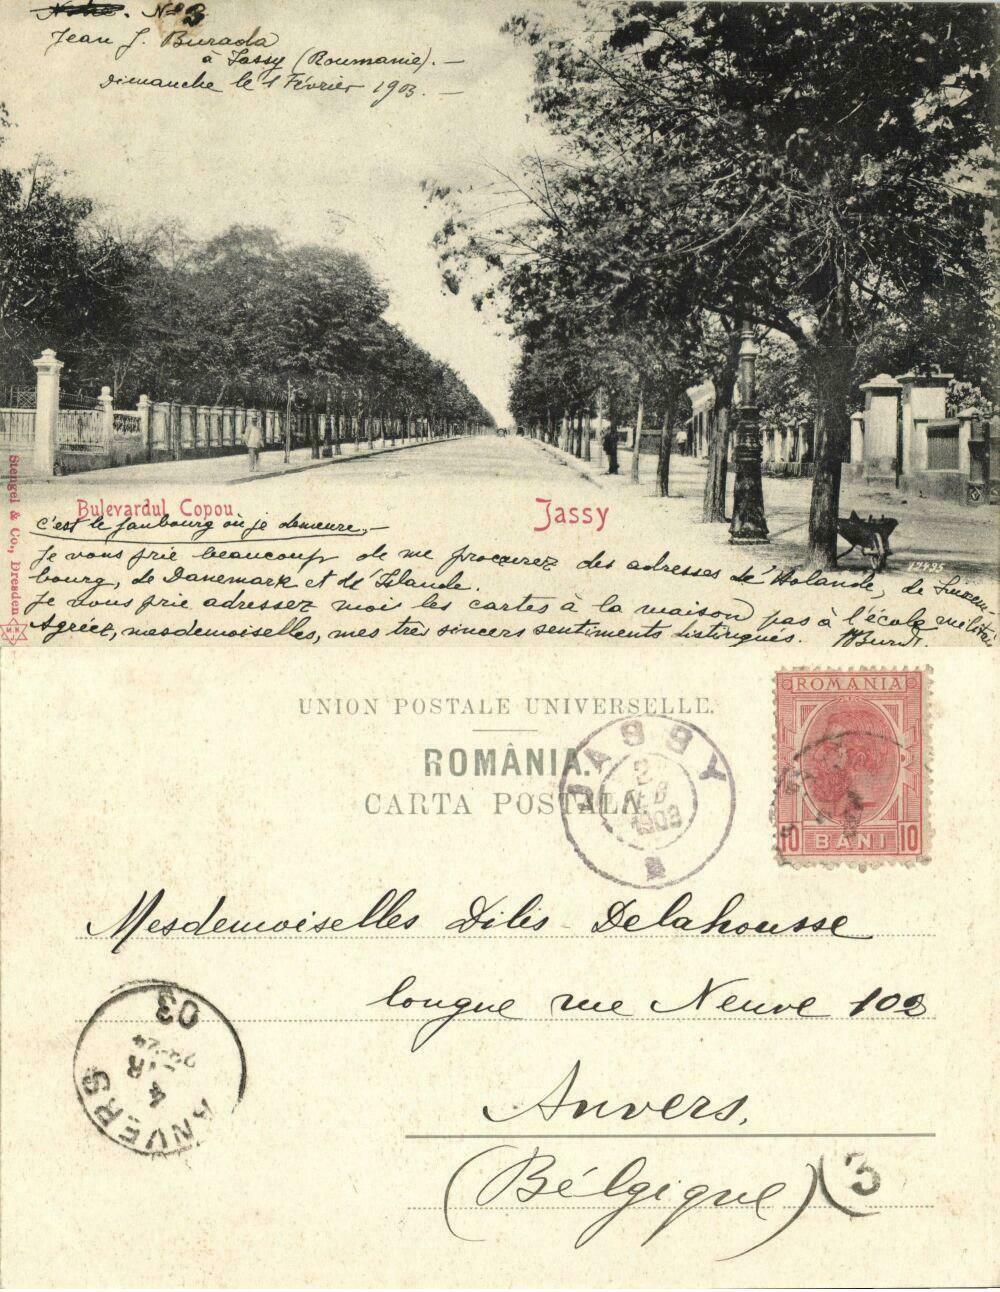 Nº 3
Jean J. Burada
à Jassy (Roumanie). —
Dimanche le 1 Février 1903. —
Stengel & Co., Dresden
Bulevardul Copou
Jassy
c'est le faubourg où je demeure, —
12495
Je vous prie beaucoup de me procurez des adresses de Holande, de Luxem-
bourg, de Danemark et d'Islande.
Je vous prie adressez mois les cartes à la maison pas à l'école militai
Agréez, mesdemoiselles, mes très sincers sentiments distingués.
UNION POSTALE UNIVERSELLE.
ROMÂNIA.
CARTA POSTALA.
JASSY
2
FEB
1903
ROMANIA
10 BANI 10
Mesdemoiselles Dilis - Delahousse
longue rue Neuve 102
Anvers.
(Bélgique)
3
ANVERS
4
03